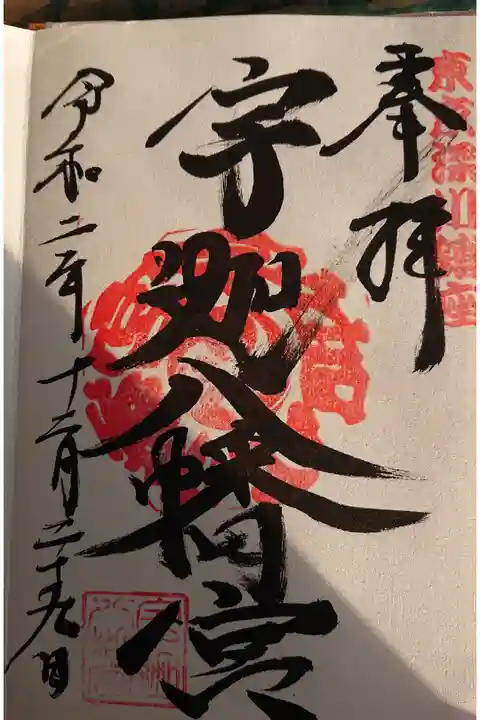 東京深川鎮座
奉拝
宇迦八幡宮
令和二年十二月二十九日